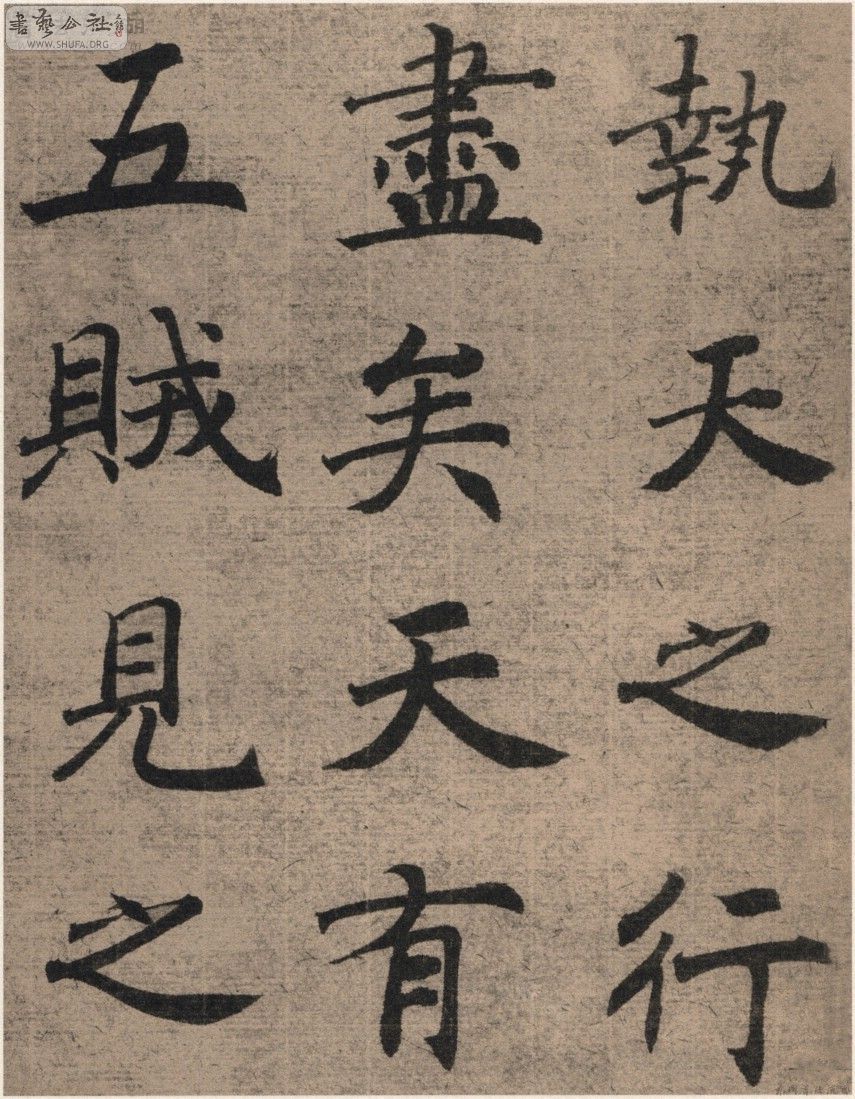 執天之行
盡矣天有
五賊見之
書藝公社
WWW.SHUFA.ORG